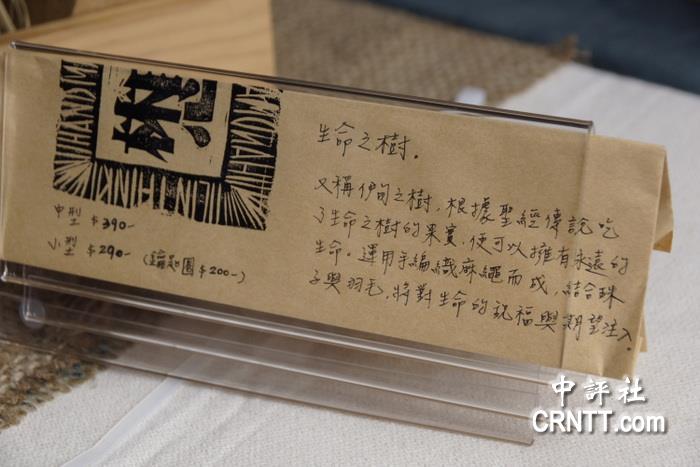 生命之樹.
又稱伊甸之樹，根據聖經傳說吃
了生命之樹的果實，便可以擁有永遠的
生命。運用手編織麻繩而成，結合珠
子與羽毛，將對生命的祝福與期望注入.
中型 $390-
小型 $290- (鑰匙圈$200-)
中評社
CRNTT.com